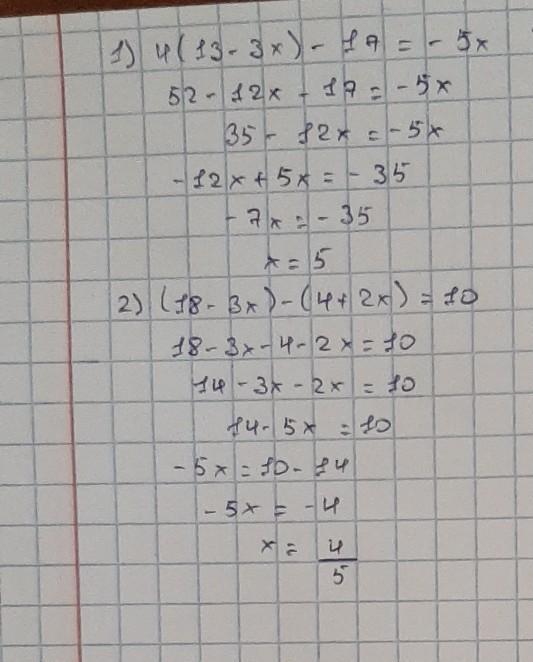 1) 4(13-3x)-17=-5x
52-12x-17=-5x
35-12x=-5x
-12x+5x=-35
-7x=-35
x=5
2) (18-3x)-(4+2x)=10
18-3x-4-2x=10
14-3x-2x=10
14-5x=10
-5x=10-14
-5x=-4
x=4/5